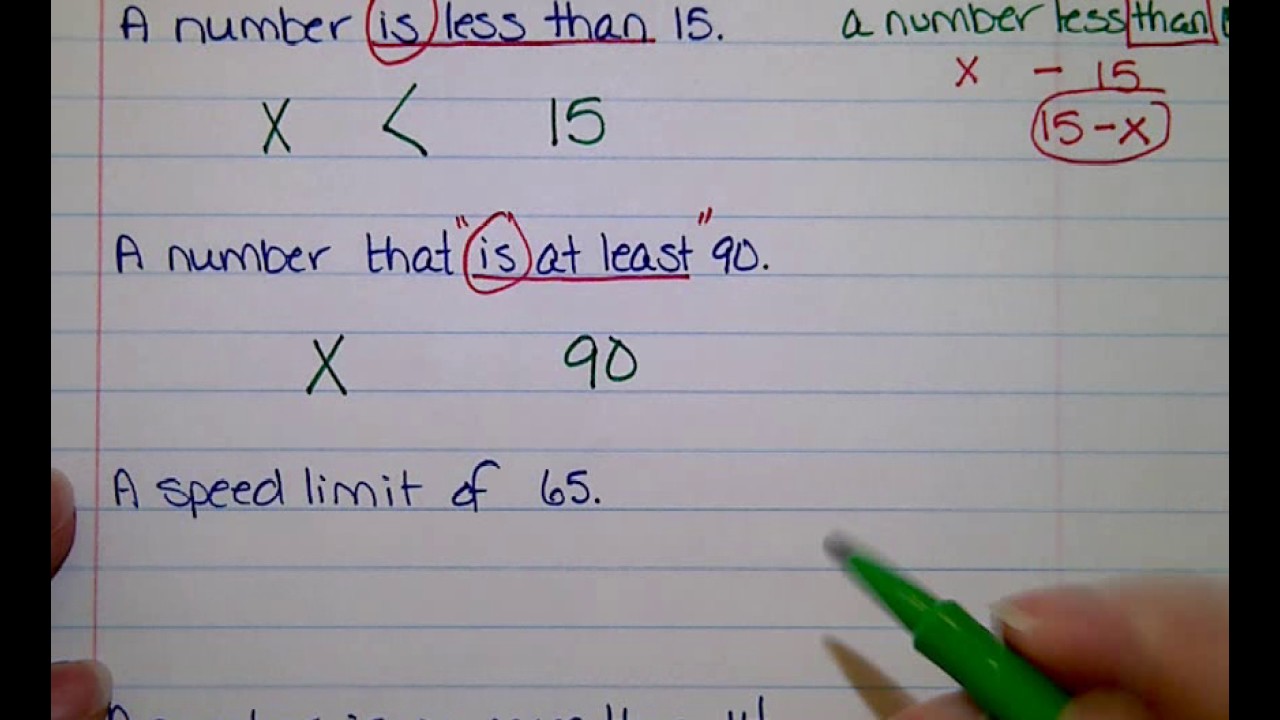 A number is less than 15.
x < 15
a number less than
x - 15
15-x
A number that "is" at least" 90.
x 90
A speed limit of 65.